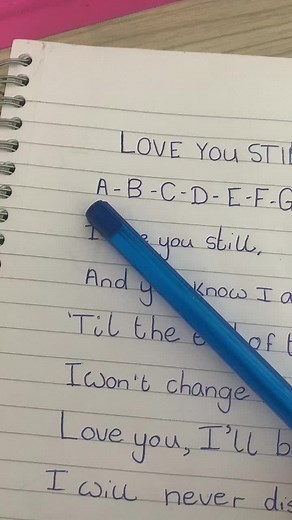 LOVE YOU STIL
A-B-C-D-E-F-G
I you still,
And know I a
'Til the of t
I won't change
Love you, I'll b
I will never dis